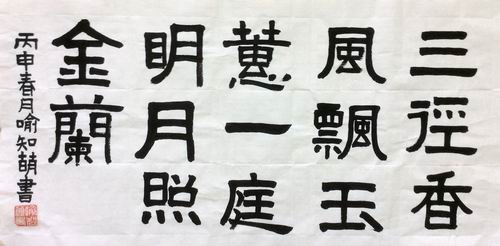 三徑香
風飄玉
蕙一庭
明月照
金蘭
丙申春月喻知萌書